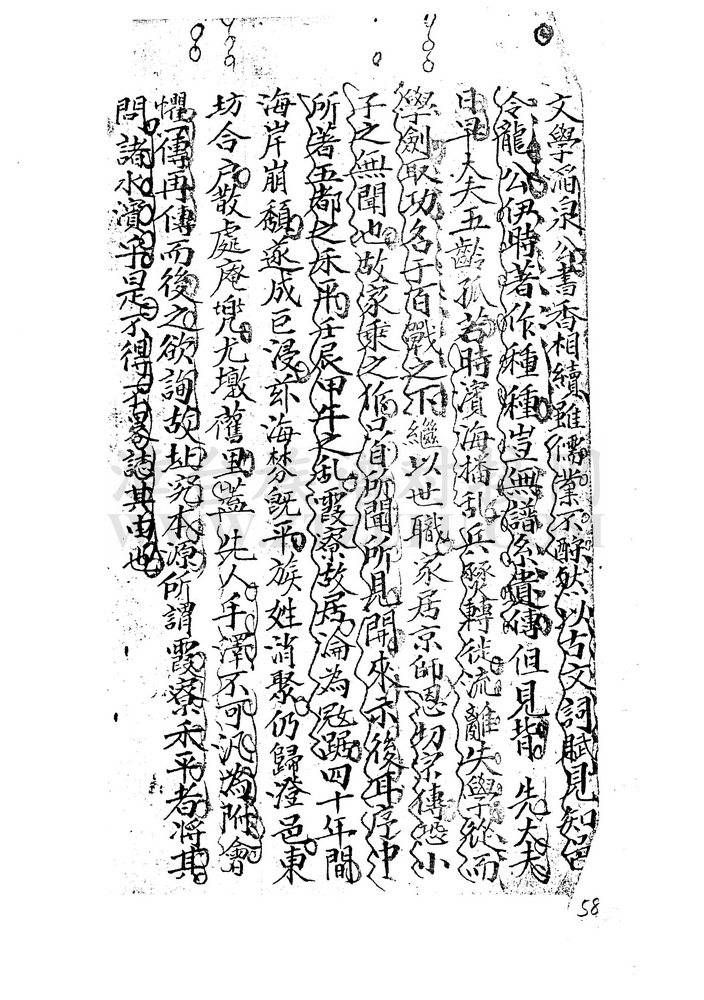 文學涵泉公書香相續雖儒業不酹然以古文詞賦見知邑
令龍公伊時著作種種豈無譜系遺磚但見背先大夫
日早大夫五齡孤苦時濱海播乱兵燹轉徙流離失學從而
學劍取功名于百戰之下繼以世職家居京師恩切宗傳恐小
子之無聞也故家乘之作只自所聞所見開來示後耳序中
所著玉都之禾平壬辰甲午之乱霞寮故居淪為寇踞四十年間
海岸崩頹遂成巨浸迯海棼旣平族姓消聚仍歸澄邑東
坊合户散處庵兜尤墩舊里蓋先人手澤不可汎為附會
懼一傳再傳而後之欲詢故址究本源所謂霞寮禾平者將其
問諸水濱乎是不得不畧誌其由也
58